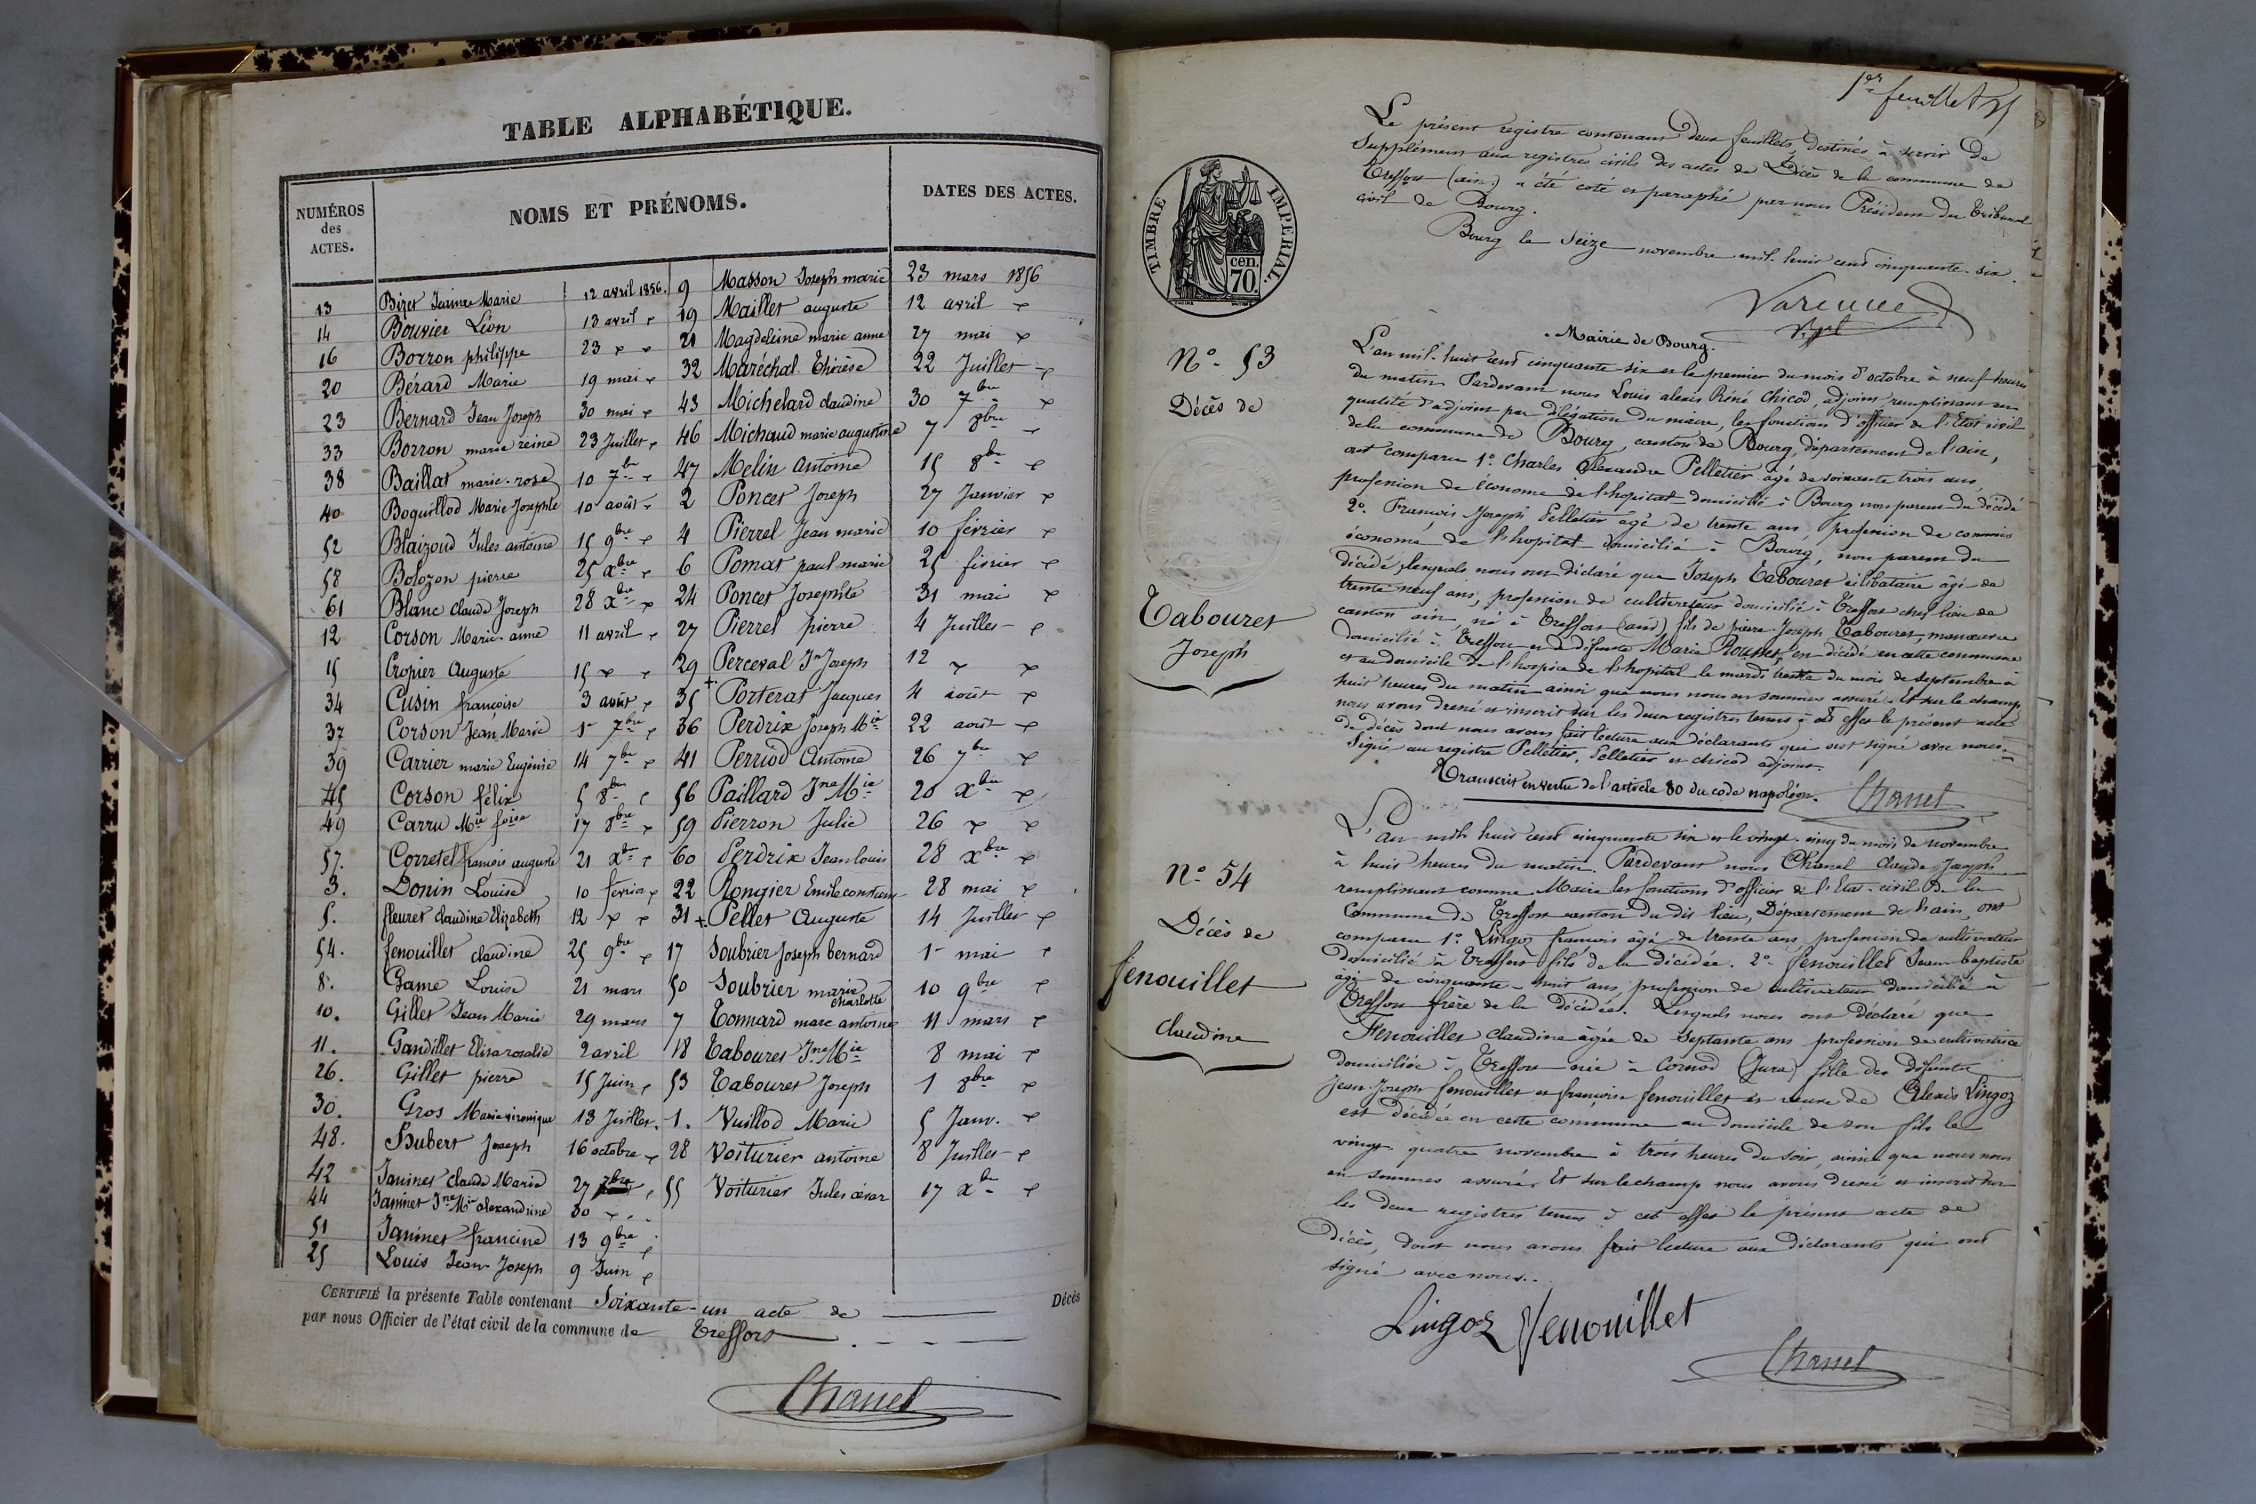 TABLE ALPHABÉTIQUE.
NUMÉROS des ACTES.
NOMS ET PRÉNOMS.
DATES DES ACTES.
13 Bizet Jeanne Marie 12 avril 1856.
14 Bouvier Léon 13 avril
16 Borron philippe 23
20 Bérard Marie 19 mai
23 Bernard Jean Joseph 30 mai
33 Borron marie reine 23 Juillet
38 Baillat marie-rose 10 7bre
40 Boquillod Marie Josephte 10 août
52 Blaizoud Jules antoine 15 9bre
58 Bolozon pierre 25 Xbre
61 Blanc Claude Joseph 28 Xbre
12 Corson Marie-anne 11 avril
15 Cropier Auguste 15
34 Cusin françoise 3 août
37 Corson Jean Marie 1er 7bre
39 Carrier marie Eugénie 14 7bre
45 Corson félix 5 8bre
49 Carru Mie foise 17 8bre
57. Corretel françois auguste 21 Xbre
3. Donin Louise 10 février
5. fleuret claudine Elizabeth 12
54. fenouillet claudine 25 9bre
8. Game Louise 21 mars
10. Gillet Jean Marie 29 mars
11. Gandillet Elisa rosalie 2 avril
26. Gillet pierre 15 Juin
30. Gros Marie véronique 13 Juillet
48. Hubert Joseph 16 octobre
42 Janinet claude Marie 27 7bre
44 Janinet Jne Mie alexandrine 30
51 Janinet francine 13 9bre
25 Louis Jean Joseph 9 Juin
9 Masson Joseph marie 23 mars 1856
19 Maillet auguste 12 avril
21 Magdeleine marie anne 27 mai
32 Maréchal Thérèse 22 Juillet
43 Michelard claudine 30 7bre
46 Michaud marie augustine 7 8bre
47 Melin Antoine 15 8bre
2 Poncet Joseph 27 Janvier
4 Pierrel Jean marie 10 février
6 Pomat paul marie 25 février
24 Poncet Josephte 31 mai
27 Pierrel pierre 4 Juillet
29 Perceval Jn Joseph 12
35 Porterat Jacques 4 août
36 Perdrix Joseph Mie 22 août
41 Perriod Antoine 26 7bre
56 Paillard Jne Mie 20 Xbre
59 Pierron Julie 26
60 Perdrix Jean louis 28 Xbre
22 Rongier Emile constant 28 mai
31 Pellet Auguste 14 Juillet
17 Soubrier Joseph bernard 1er mai
50 Soubrier marie charlotte 10 9bre
7 Tonnard marc antoine 11 mars
18 Tabouret Jne Mie 8 mai
53 Tabouret Joseph 1 8bre
1. Vuillod Marie 5 Janv.
28 Voiturier antoine 8 Juillet
55 Voiturier Jules césar 17 Xbre
CERTIFIÉ la présente Table contenant Soixante-un acte de Décès
par nous Officier de l'état civil de la commune de Treffort
Chanel
1er feuillet
Le présent registre contenant deux feuillets, destinés à servir de
Supplément aux registres civils des actes de Décès de la commune de
Treffort (ain) a été coté et paraphé par nous Président du Tribunal
civil de Bourg.
Bourg le Seize novembre mil huit cent cinquante-six.
TIMBRE IMPÉRIAL.
70 cen.
Mairie de Bourg.
N° 53
Décès de
Tabouret
Joseph
L'an mil-huit cent cinquante six et le premier du mois d'octobre à neuf heures
du matin Pardevant nous Louis alexis Réné Chicod, adjoint remplissant en
qualité d'adjoint par délégation du maire, les fonctions d'officier de l'Etat civil
de la commune de Bourg, canton de Bourg, département de l'ain,
ont comparu 1° Charles Alexandre Pelletier âgé de soixante trois ans,
profession de économe de l'hopital domicilié à Bourg non parent du décédé
2° François Joseph Pelletier âgé de trente ans, profession de commis
économe de l'hopital domicilié à Bourg, non parent du
décédé, lesquels nous ont déclaré que Joseph Tabouret célibataire âgé de
trente neuf ans, profession de cultivateur domicilié à Treffort chef lieu de
canton ain, né à Treffort (ain) fils de pierre Joseph Tabouret manœuvre
domicilié à Treffort et de défunte Marie Rousset, est décédé en cette commune
et au domicile de l'hospice de l'hopital le mardi trente du mois de septembre à
huit heures du matin ainsi que nous nous en sommes assuré. Et sur le champ
nous avons dressé et inscrit sur les deux registres tenus à cet effet le présent acte
de décès dont nous avons fait lecture aux déclarants qui ont signé avec nous.
Signé au registre Pelletier, Pelletier et chicod adjoint.
Transcrit en vertu de l'article 80 du code napoléon. Chanel
N° 54
Décès de
fenouillet
claudine
L'an mil huit cent cinquante six et le vingt-cinq du mois de novembre
à huit heures du matin. Pardevant nous Chanel Claude Joseph
remplissant comme Maire les fonctions d'officier de l'Etat-civil de la
Commune de Treffort canton du dit lieu, Département de l'ain, ont
comparu 1° Lingoz françois âgé de trente ans, profession de cultivateur
domicilié à Treffort fils de la décédée. 2° fenouillet Jean baptiste
âgé de cinquante-huit ans, profession de cultivateur domicilié à
Treffort frère de la décédée. Lesquels nous ont déclaré que
Fenouillet Claudine âgée de Septante ans profession de cultivatrice
domiciliée à Treffort née à Cornod (Jura) fille des défunts
Jean Joseph fenouillet et françoise fenouillet et veuve de Alexis Lingoz
est décédée en cette commune au domicile de son fils le
vingt quatre novembre à trois heures du soir, ainsi que nous nous
en sommes assuré. Et sur le champ nous avons dressé et inscrit sur
les deux registres tenus à cet effet le présent acte de
Décès, dont nous avons fait lecture aux déclarants qui ont
signé avec nous.
Lingoz Fenouillet
Chanel